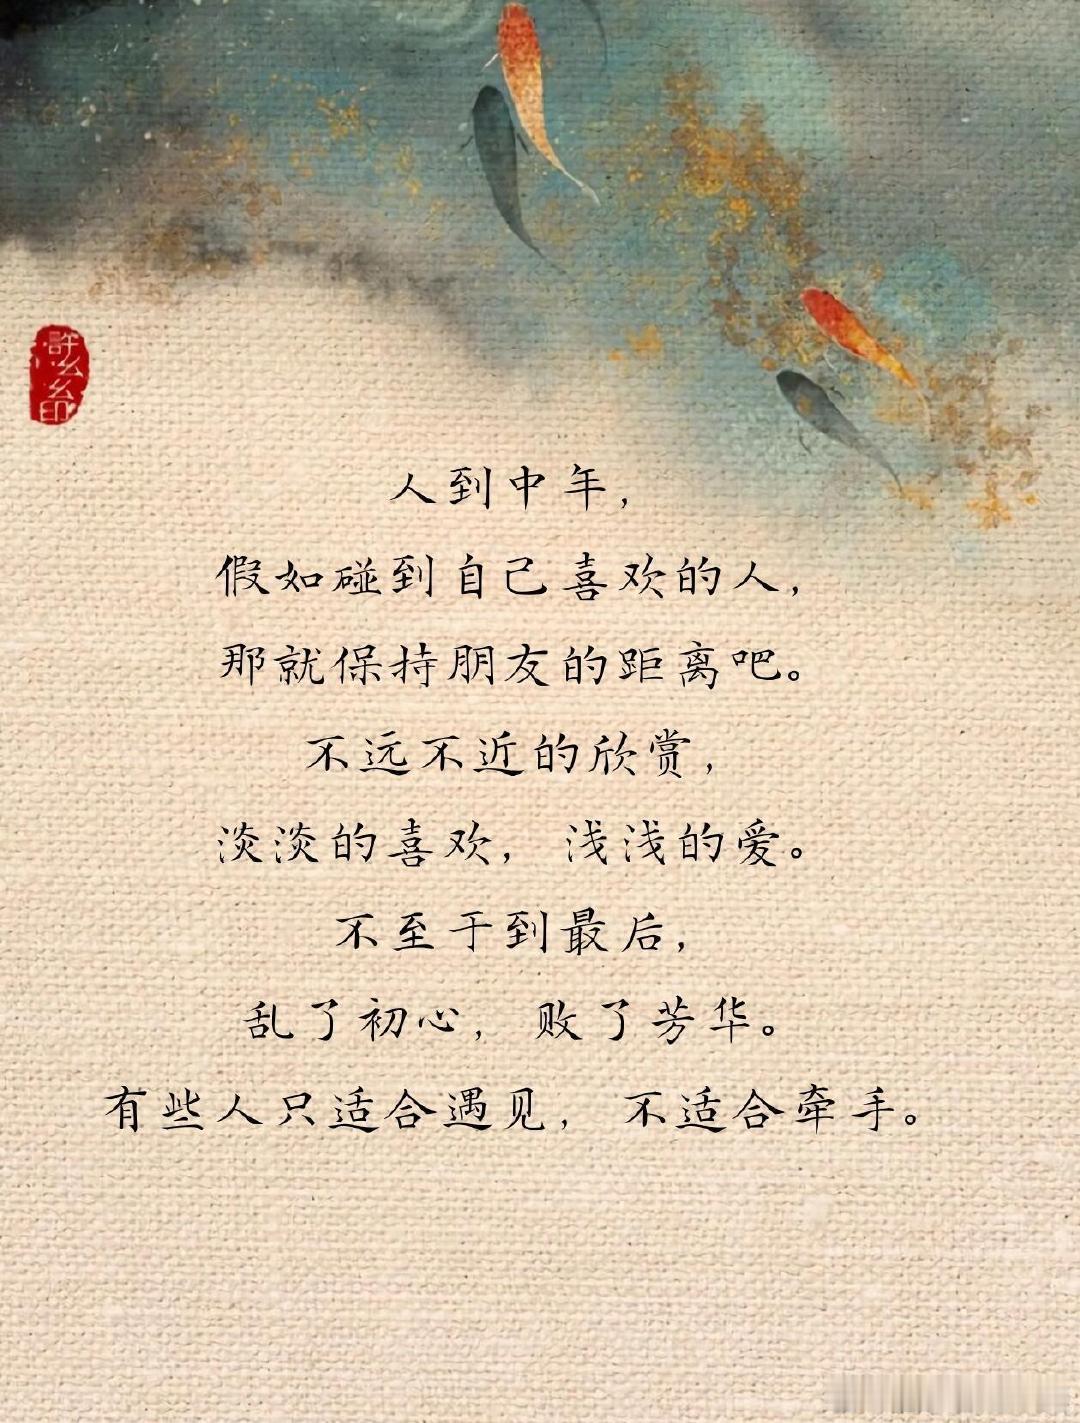 人到中年，
假如碰到自己喜欢的人，
那就保持朋友的距离吧。
不远不近的欣赏，
淡淡的喜欢，浅浅的爱。
不至于到最后，
乱了初心，败了芳华。
有些人只适合遇见，不适合牵手。